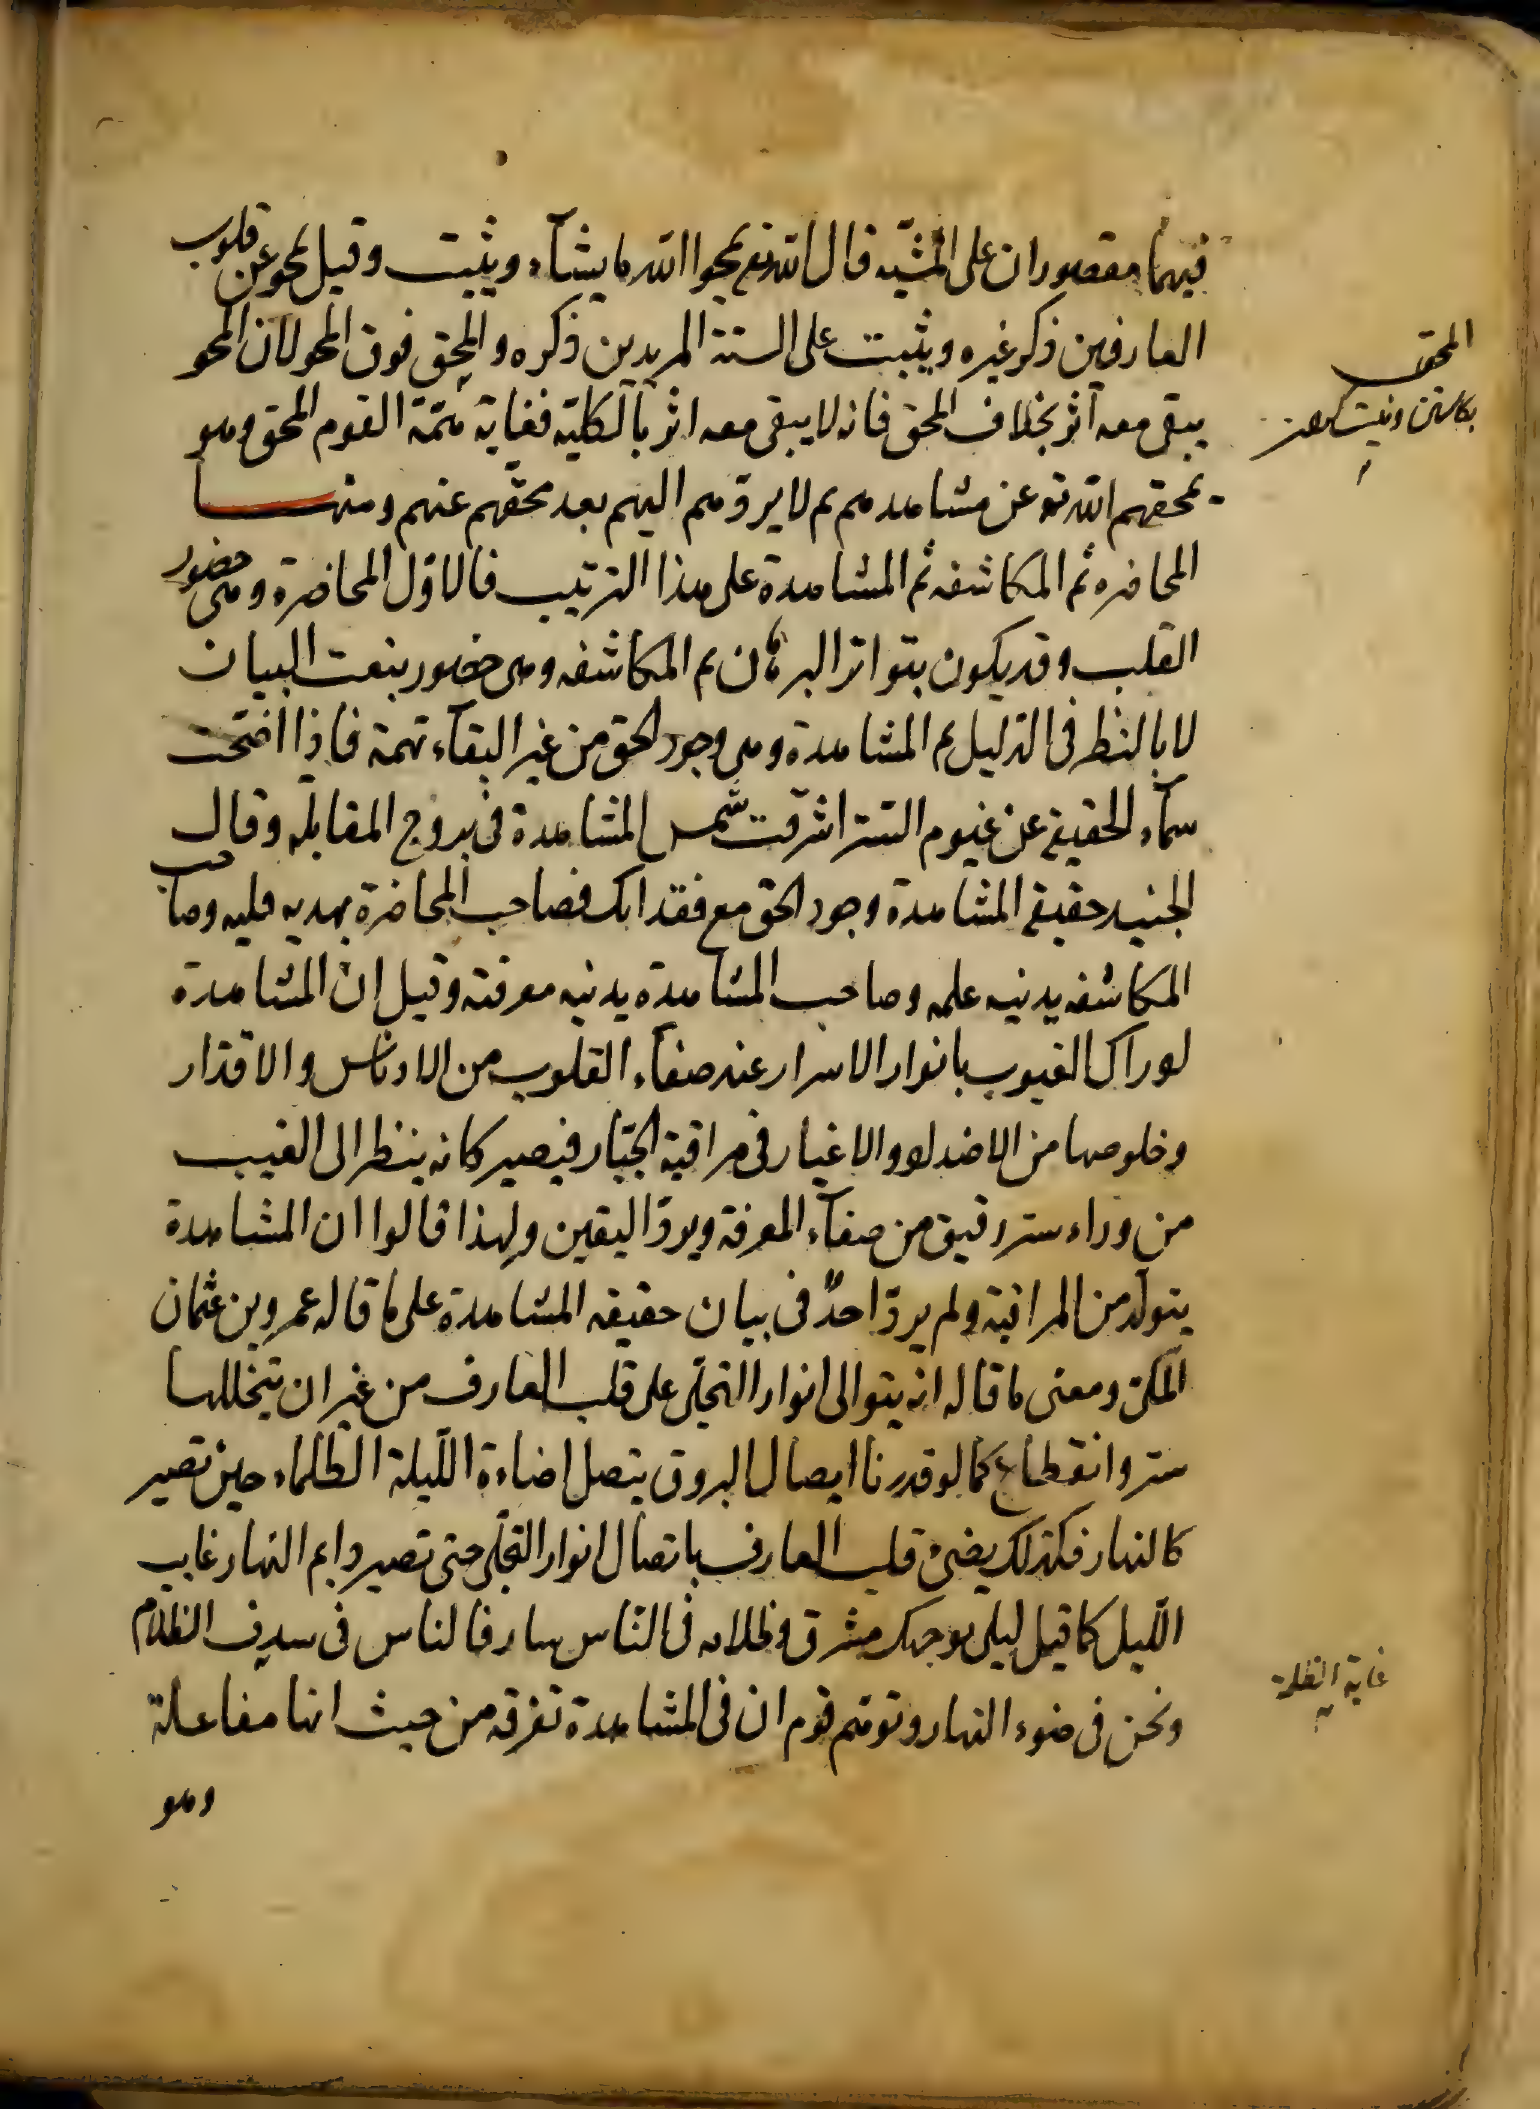 فيهما مقصوران على المشية قال الله تع يمحوا الله ما يشآء ويثبت وقيل يمحو عن قلوب
العارفين ذكر غيره ويثبت على السنة المريدين ذكره والمحق فوق المحو لان المحو
يبقى معه اثر بخلاف المحق فانه لا يبقى معه اثر بالكلية فغاية همّة القوم المحق وهو
يمحقهم الله تع عن مشاهدهم ثم لا يردّهم اليهم بعد محقهم عنهم ومنها
المحاضره ثم المكاشفه ثم المشاهدة على هذا الترتيب فالاوّل المحاضرة وهى حضور
القلب وقد يكون بتواتر البرهان ثم المكاشفه وهى حضور بنعت البيان
لا بالنظر فى الدليل ثم المشاهدة وهى وجود الحق من غير البقآء تهمة فاذا اضحت
سمآء الحقيقة عن غيوم الستر اشرقت شمس المشاهدة فى بروج المقابله وقال
الجنيد حقيقة المشاهدة وجود الحق مع فقدانك فصاحب المحاضرة يهديه قلبه وصاحب
المكاشفه يدنيه علمه وصاحب المشاهدة يدنيه معرفته وقيل ان المشاهدة
ادراك الغيوب بانوار الاسرار عند صفآء القلوب من الادناس والاقذار
وخلوصها من الاضداد والاغيار فى مراقبة الجبّار فيصير كانه ينظر الى الغيب
من وراء ستر رقيق من صفآء المعرفة وبرد اليقين ولهذا قالوا ان المشاهدة
يتولّد من المراقبة ولم يرد احدٌ فى بيان حقيقه المشاهدة على ما قاله عمرو بن عثمان
المكّى ومعنى ما قاله انه يتوالى انوار التجلّى على قلب العارف من غير ان يتخللها
ستر وانقطاع كما لو قدرنا ايصال البروق يتصل اضاءة اللّيلة الظلماء حين تصير
كالنهار فكذلك يضئ قلب العارف باتصال انوار التجلّى حتى تصير دايم النهار غايب
اللّيل كما قيل ليلى بوجهك مشرق وظلامه فى النّاس سار فالناس فى سدف الظلام
ونحن فى ضوء النهار وتوهّم قوم ان فى المشاهدة تفرقه من حيث انها مفاعلة
وهو
المحق
بكاستن ونيست كردن
غاية الظلمة